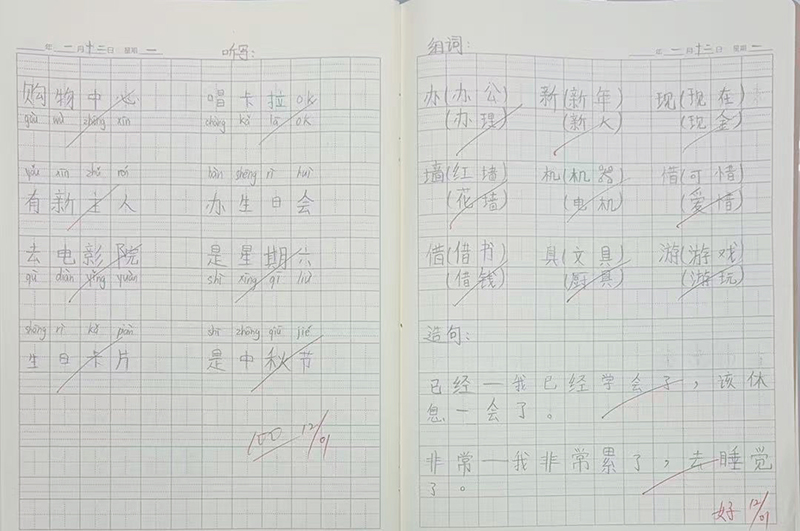 年 一 月 十二 日 星期 一
听写:
购物中心 唱卡拉OK
gòu wù zhōng xīn chàng kǎ lā OK
yǒu xīn zhǔ rén bàn shēng rì huì
有新主人 办生日会
去电影院 是星期六
qù diàn yǐng yuàn shì xīng qī liù
shēng rì kǎ piàn shì zhōng qiū jié
生日卡片 是中秋节
100 12/01
组词:
年 一 月 十二 日 星期 一
办(办公) 新(新年) 现(现在)
(办理) (新人) (现金)
墙(红墙) 机(机器) 惜(可惜)
(花墙) (电机) (爱惜)
借(借书) 具(文具) 游(游戏)
(借钱) (厨具) (游玩)
造句:
已经一我已经学会了，该休
息一会了。
非常一我非常累了，去睡觉
了。
好 12/01